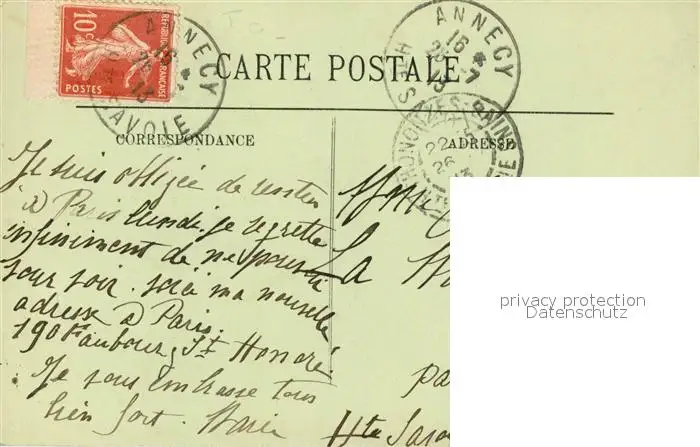 10c
REPUBLIQUE FRANÇAISE
POSTES
ANNECY
16 *
26 -7
13
SAVOIE
ANNECY
16 *
26 -7
13
H. SAVOIE
22
26
13
CARTE POSTALE
CORRESPONDANCE
ADRESSE
Je suis obligée de rester
à Paris lundi. je regrette
infiniment de ne pous
voir. voici ma nouvelle
adresse à Paris.
190 Faubourg St Honoré.
Je vous embrasse tous
bien fort. Marie
La
par
Hte Savoie
privacy protection
Datenschutz